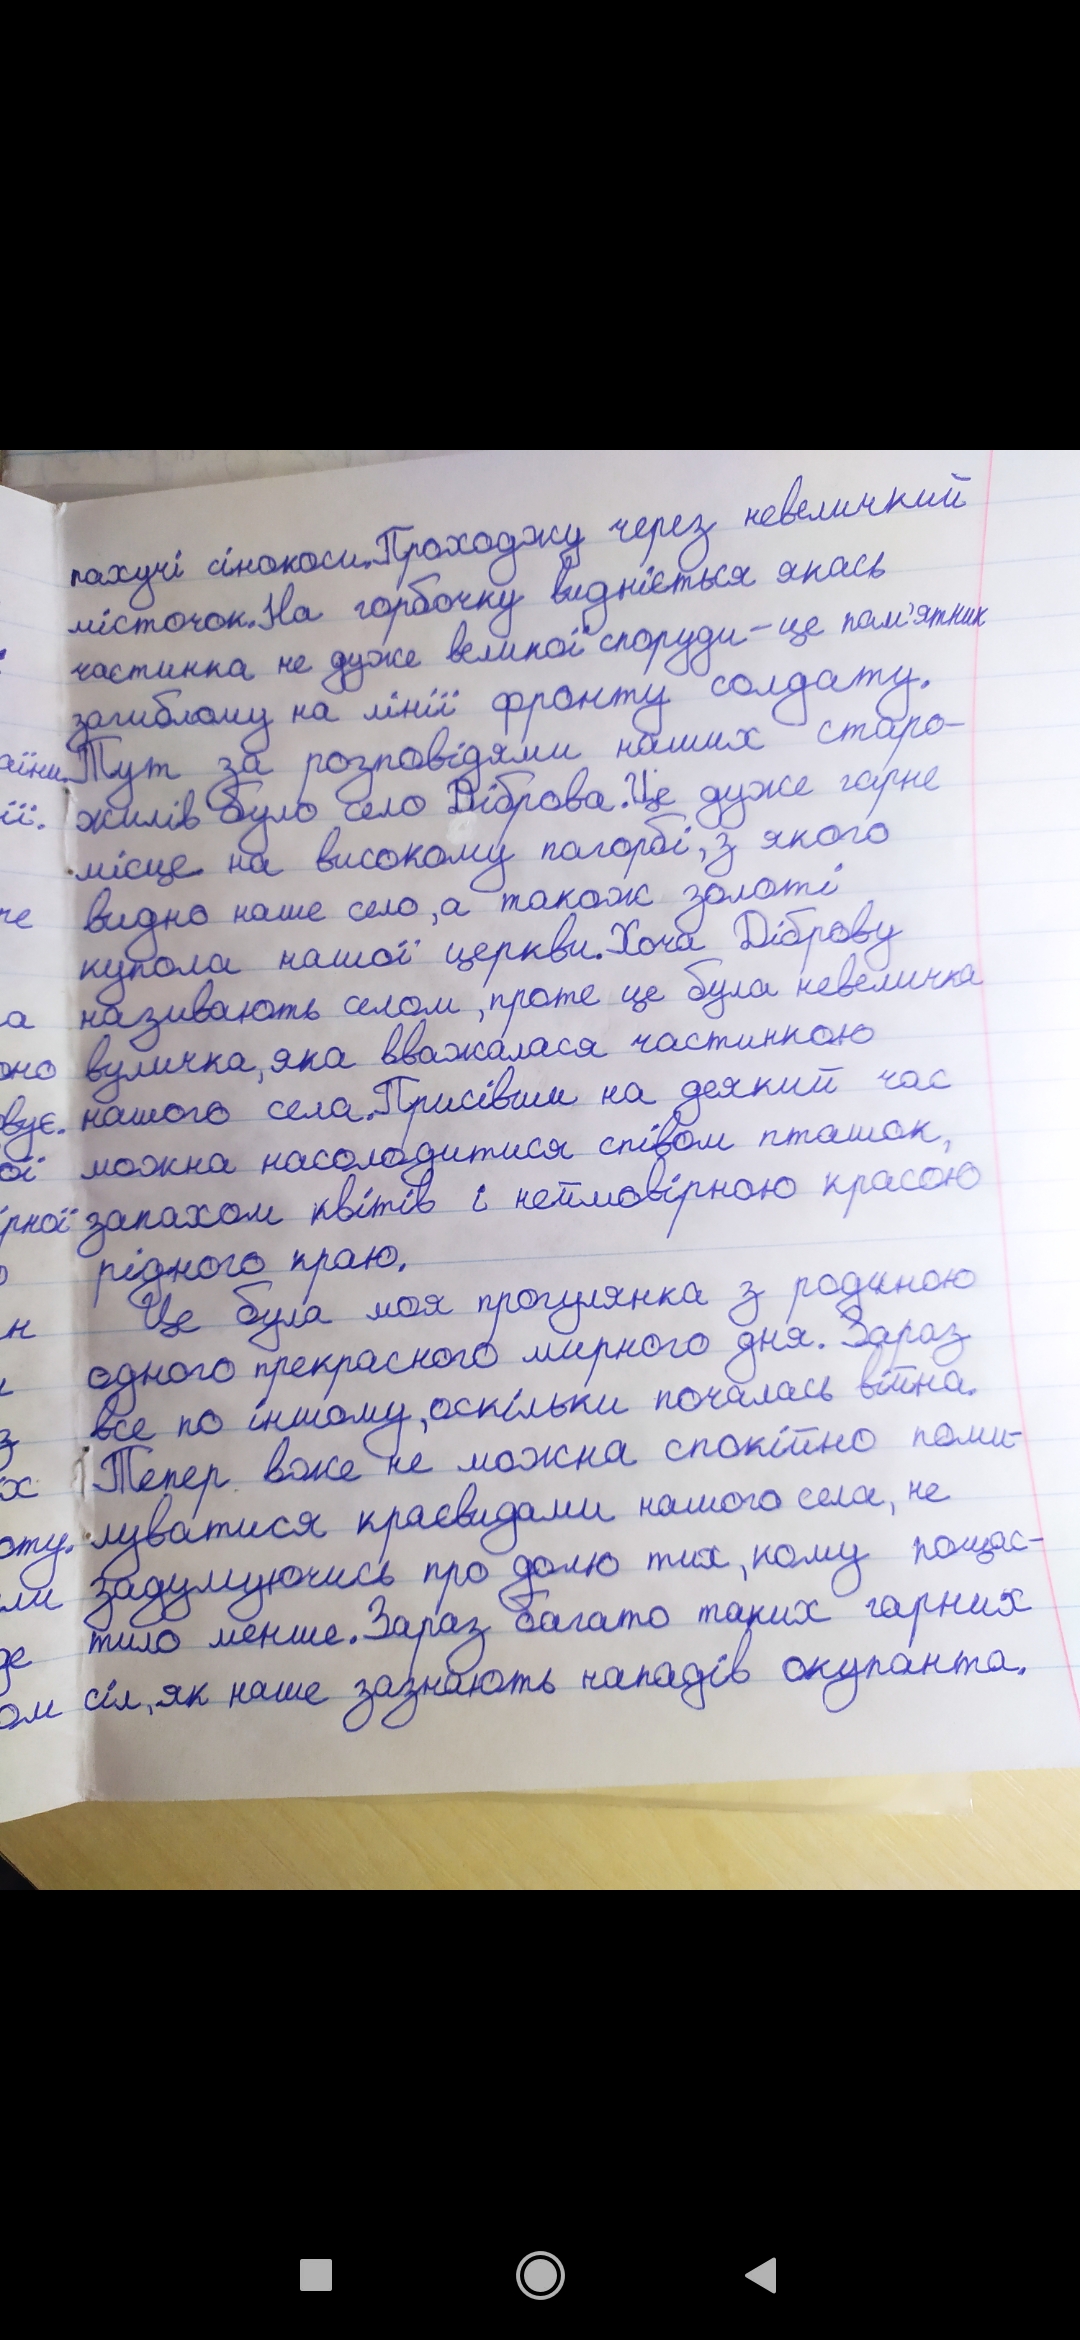 пахучі сінокоси. Проходжу через невеличкий
місточок. На горбочку видніється якась
частинка не дуже великої споруди – це пам'ятник
загиблому на лінії фронту солдату.
аїни. Тут за розповідями наших старо-
її. жилів було село Діброва. Це дуже гарне
місце на високому пагорбі, з якого
видно наше село, а також золоті
купола нашої церкви. Хоча Діброву
називають селом, проте це була невеличка
оно вуличка, яка вважалася частинкою
овує. нашого села. Присівши на деякий час
ої можна насолодитися співом пташок,
рної запахом квітів і неймовірною красою
рідного краю.
н Це була моя прогулянка з родиною
одного прекрасного мирного дня. Зараз
з все по іншому, оскільки почалась війна.
їх Тепер вже не можна спокійно поми-
оту. луватися краєвидами нашого села, не
ли задумуючись про долю тих, кому пощас-
де тило менше. Зараз багато таких гарних
ом сіл, як наше зазнають нападів окупанта.